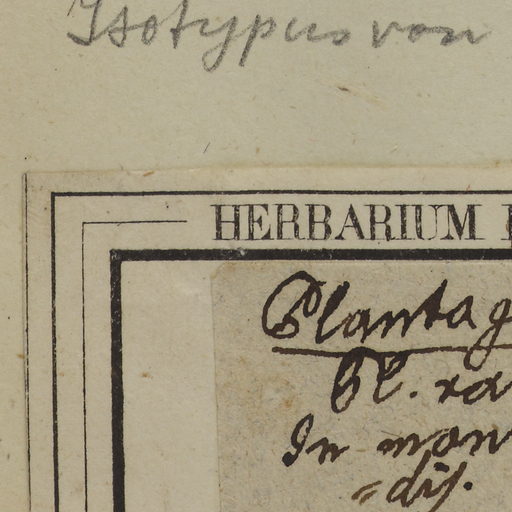 Isotypus von
HERBARIUM
Plantag
Pl. ra
In mon
=dis.